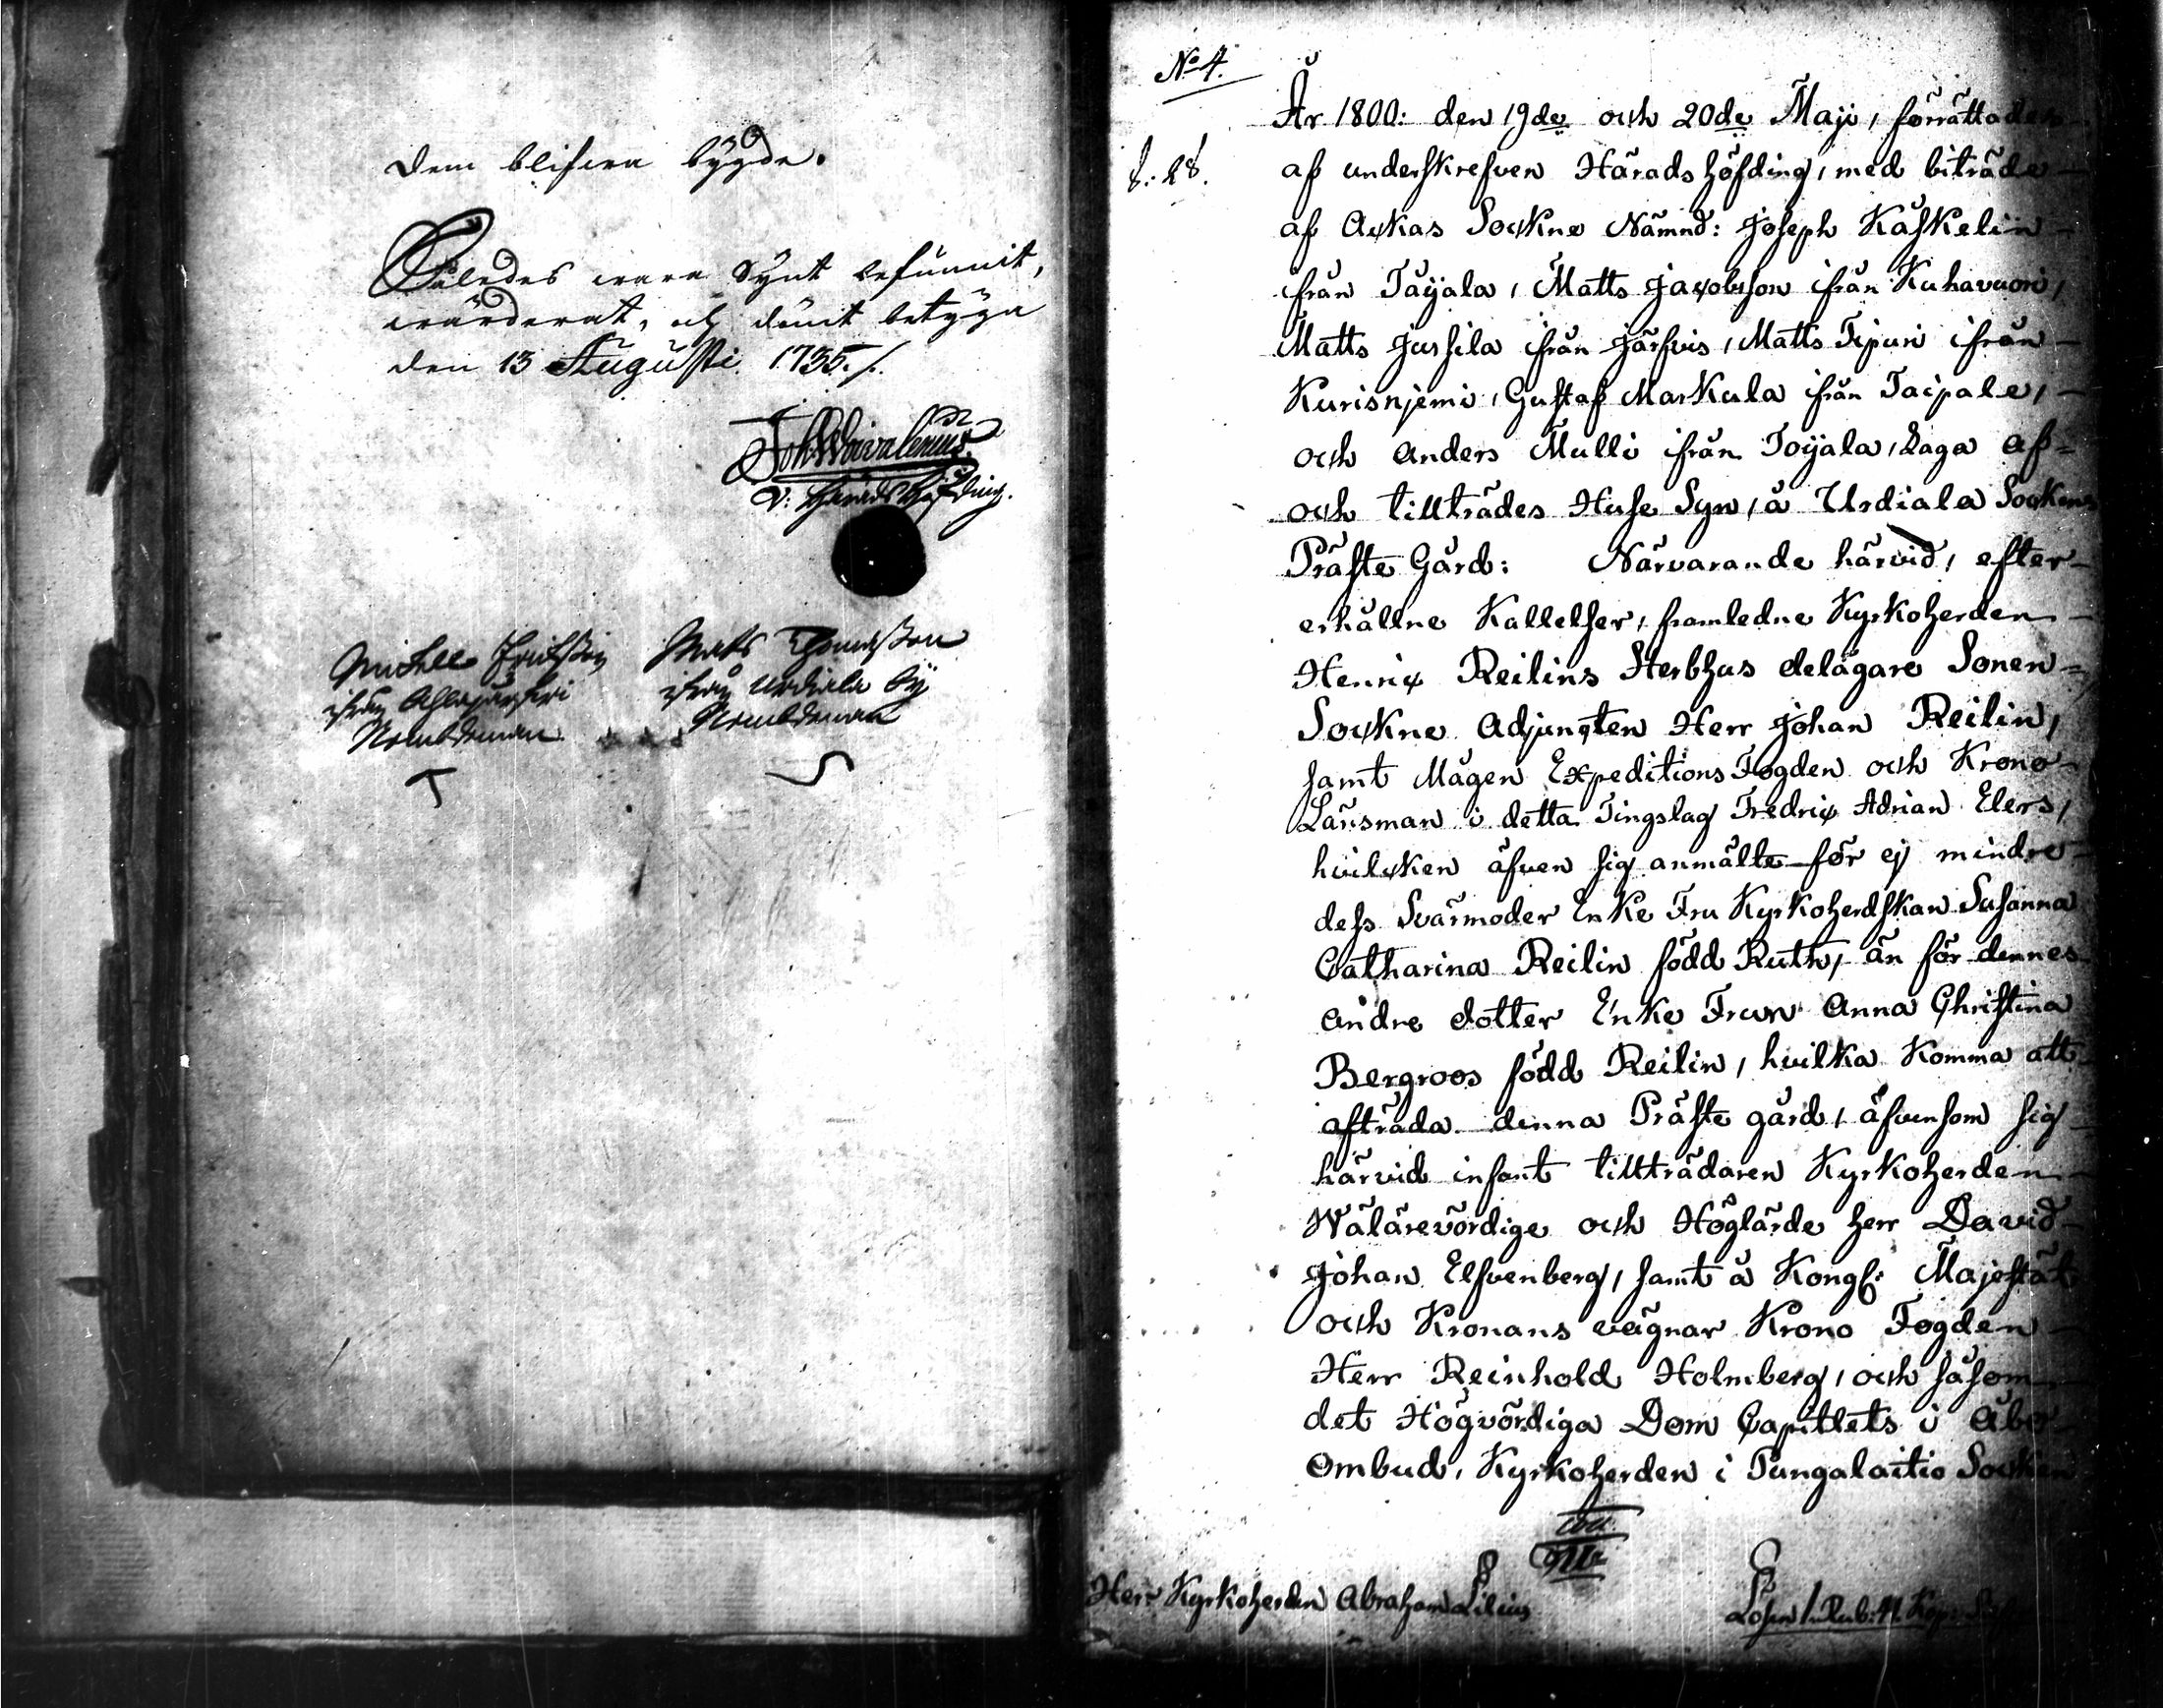 dem blifwa bÿgde.
Således wara Synt befunnit,
wärderat, och dömt betÿga
den 13 Augusti 1735./.
V: Häradshöfding.
Michell Erichsson
ifrån
Nembdeman
Mats Thomasson
ifrån Urdiala by
Nembdeman
No 4.
År 1800: den 19de och 20de Maji, förrättades
af underskrefven Häradshöfding, med biträde
af Ackas Sockne Nämnd: Joseph Kaskelin
ifrån Täyälä, Matts Jacobsson ifrån Kuhavuori,
Matts Jussila ifrån Järfvis, Matts Tipuri ifrån
Kurisnjemi, Gustaf Markula ifrån Taipale,
och Anders Mulli ifrån Toyala, Laga af=
och tillträdes Huse Syn, å Urdiala Sockens
Präste Gård: Närvarande härvid, efter
erhållne Kallelser, framledne Kyrkoherden
Henric Reilins Sterbhus delägare Sonen=
Sockne Adjuncten Herr Johan Reilin,
samt Mågen Expeditions Fogden och Krono
Länsman i detta Tingslag Fredric Adrian Elers,
hvilcken äfven sig anmälte för ej mindre
dess Svärmoder Enke Fru Kyrkoherdskan Susanna
Catharina Reilin född Ruth, än för dennes
andre dotter Enke Frun Anna Christina
Bergroos född Reilin, hvilka Komma att
afträda denna Präste gård, äfvensom sig
härvid infant tillträdaren Kyrkoherden
Wälärevördige och Höglärde herr David
Johan Elfvenberg, samt å Kongl: Majestäts
och Kronans vägnar Krono Fogden
Herr Reinhold Holmberg, och såsom
det Högvördiga Dom Capitlets i Åbo
Ombud, Kyrkoherden i Pungalaitio Socken
Herr Kyrkoherden Abraham Lilius
Lösen